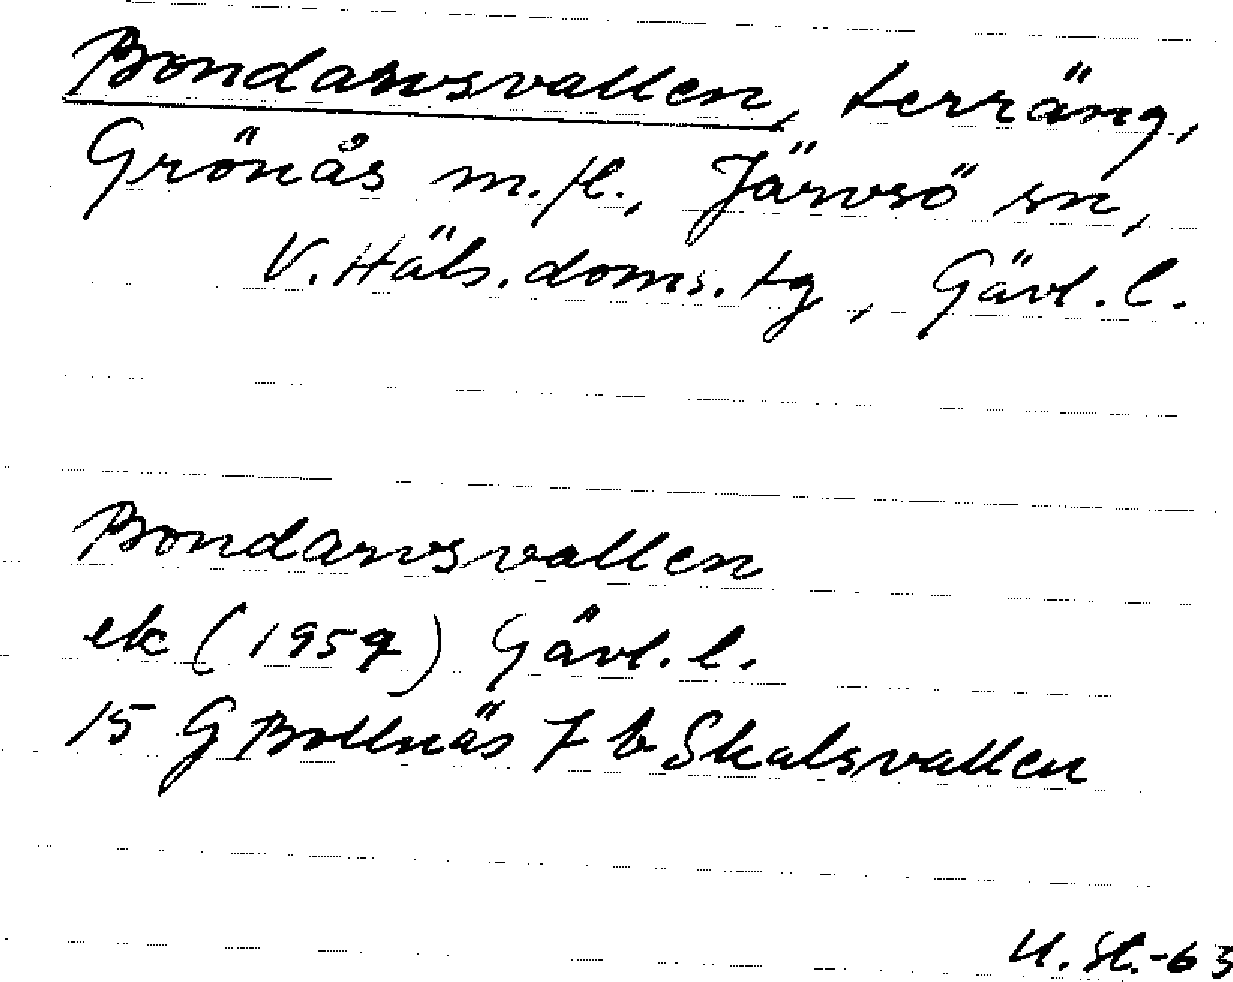 Bondarvsvallen, terräng,
Grönås m.fl., Järvsö sn,
V. Häls. doms. tg, Gävl. l.
Bondarvsvallen
ek (1959) Gävl. l.
15 G Bollnäs 7 b Skalsvallen
-63